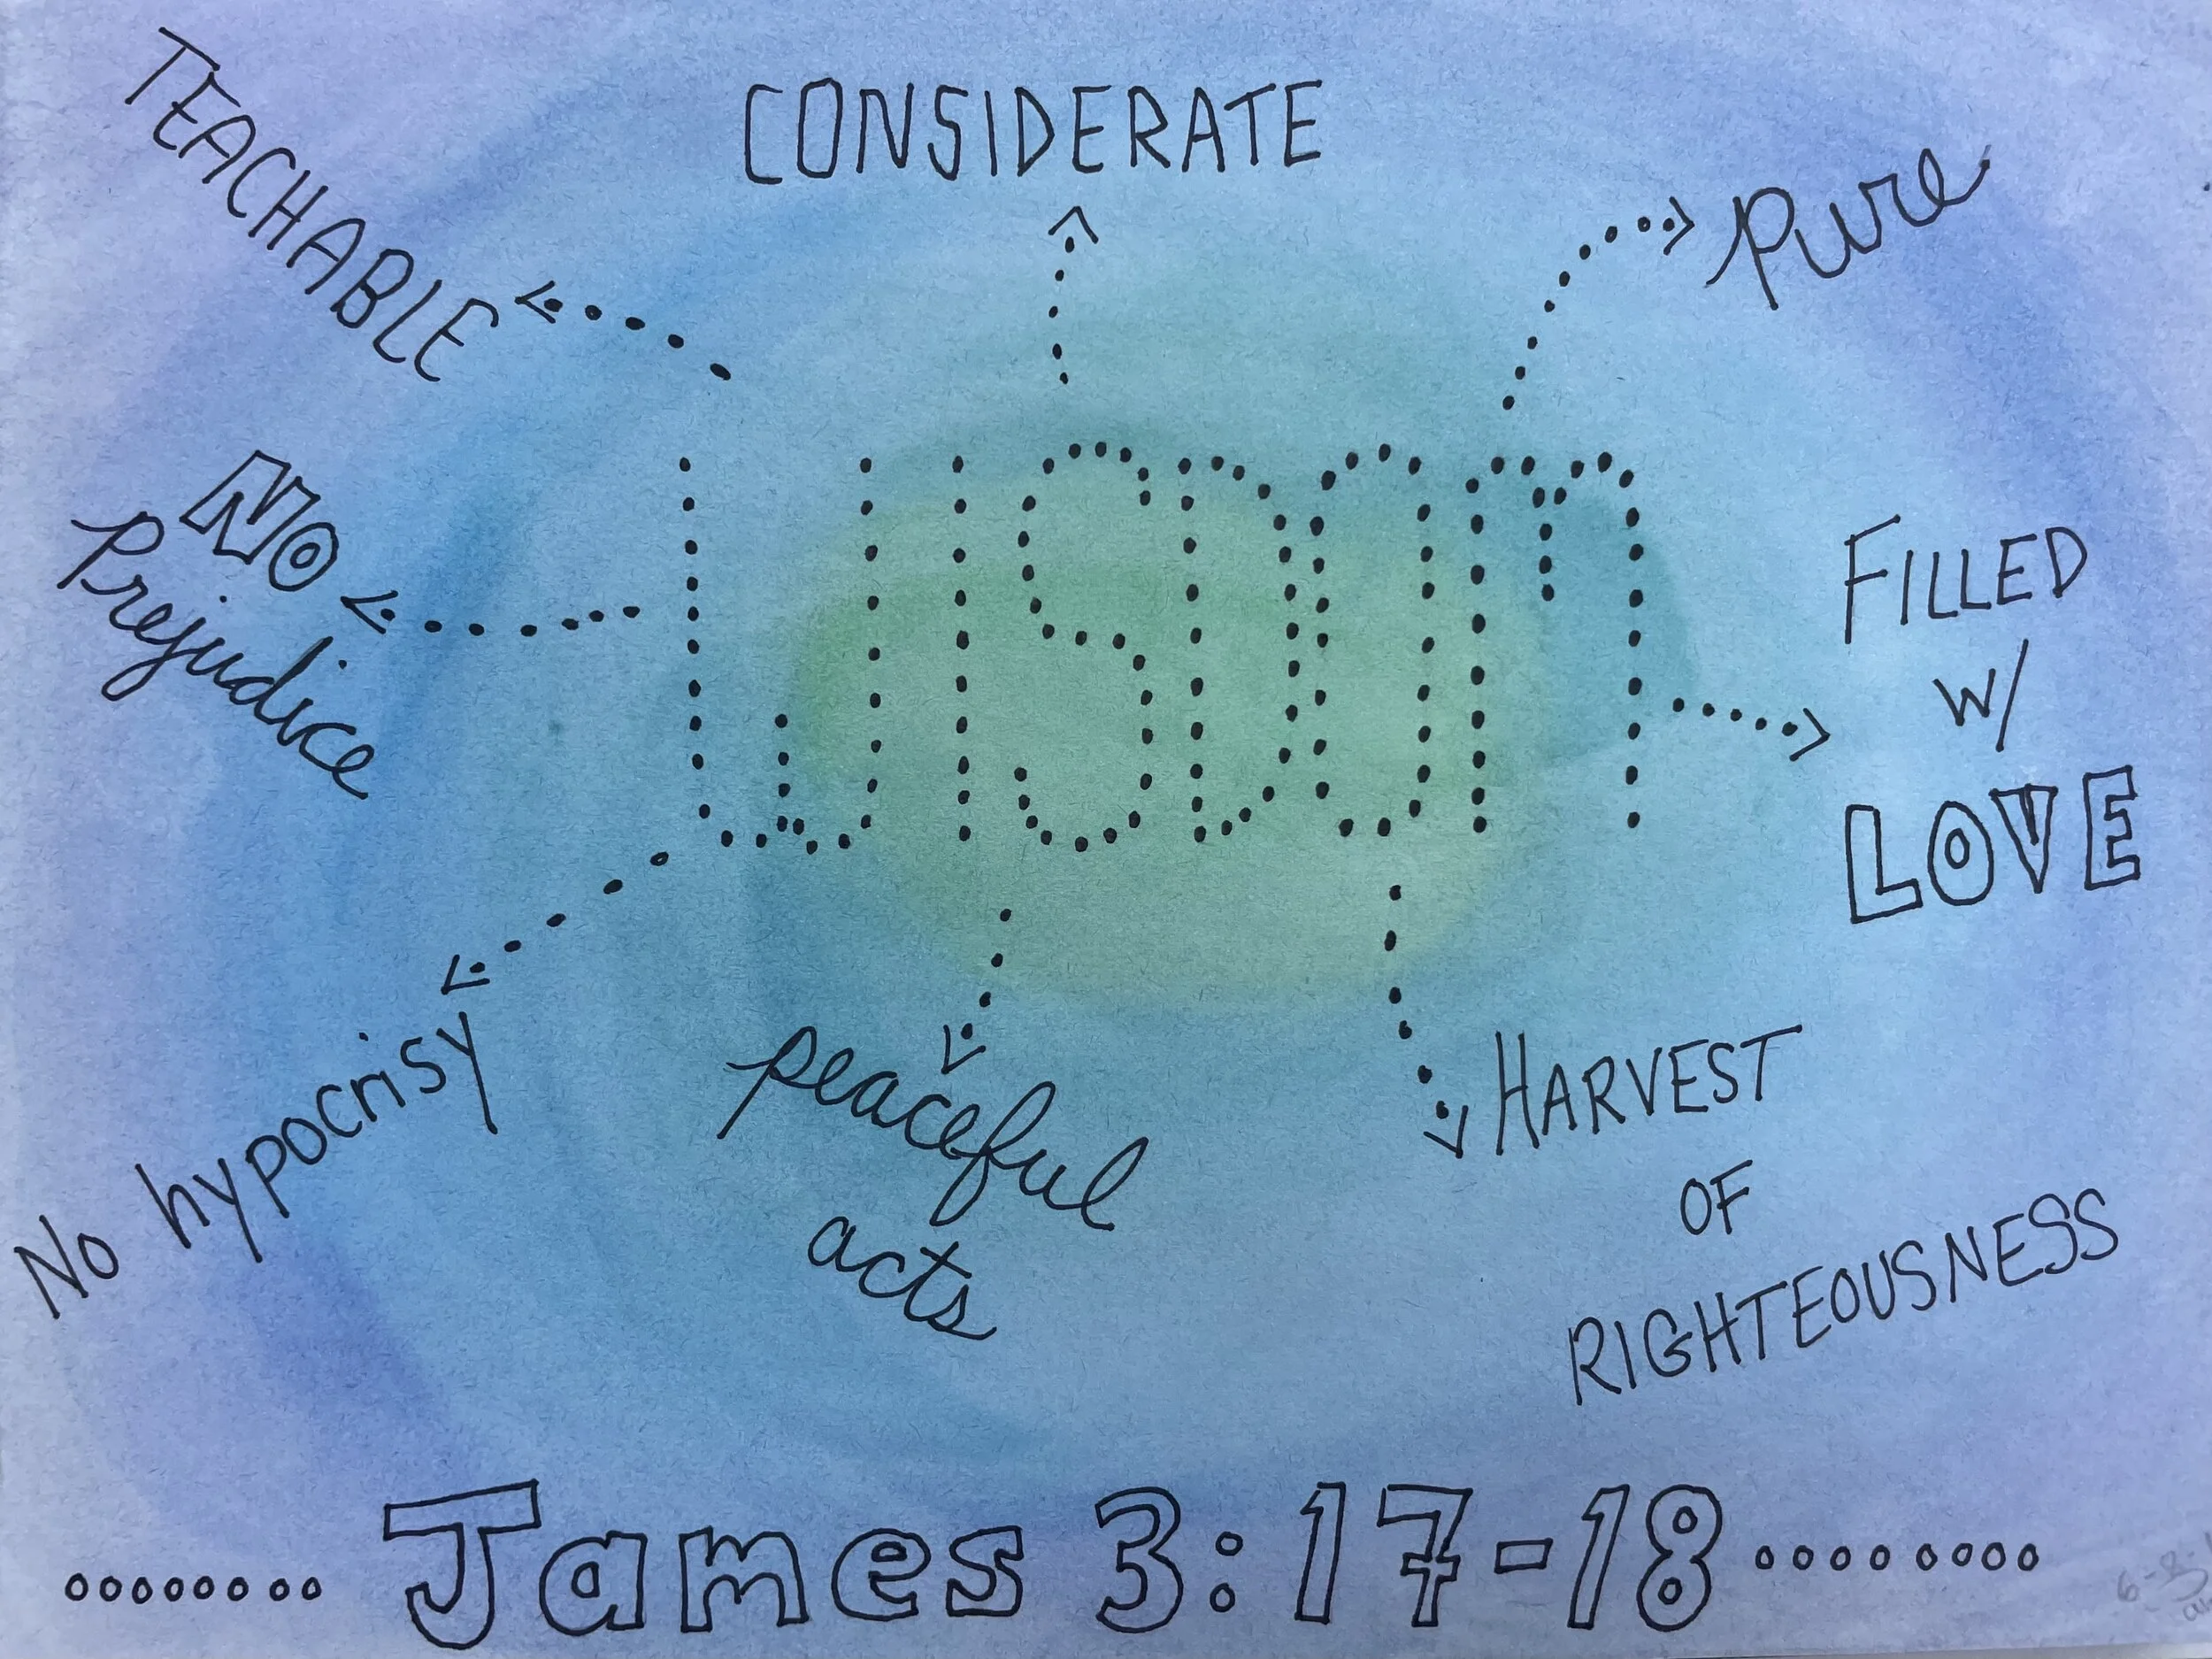 TEACHABLE
CONSIDERATE
Pure
NO
Prejudice
WISDOM
FILLED
W/
LOVE
No hypocrisy
peaceful
acts
HARVEST
OF
RIGHTEOUSNESS
James 3:17-18